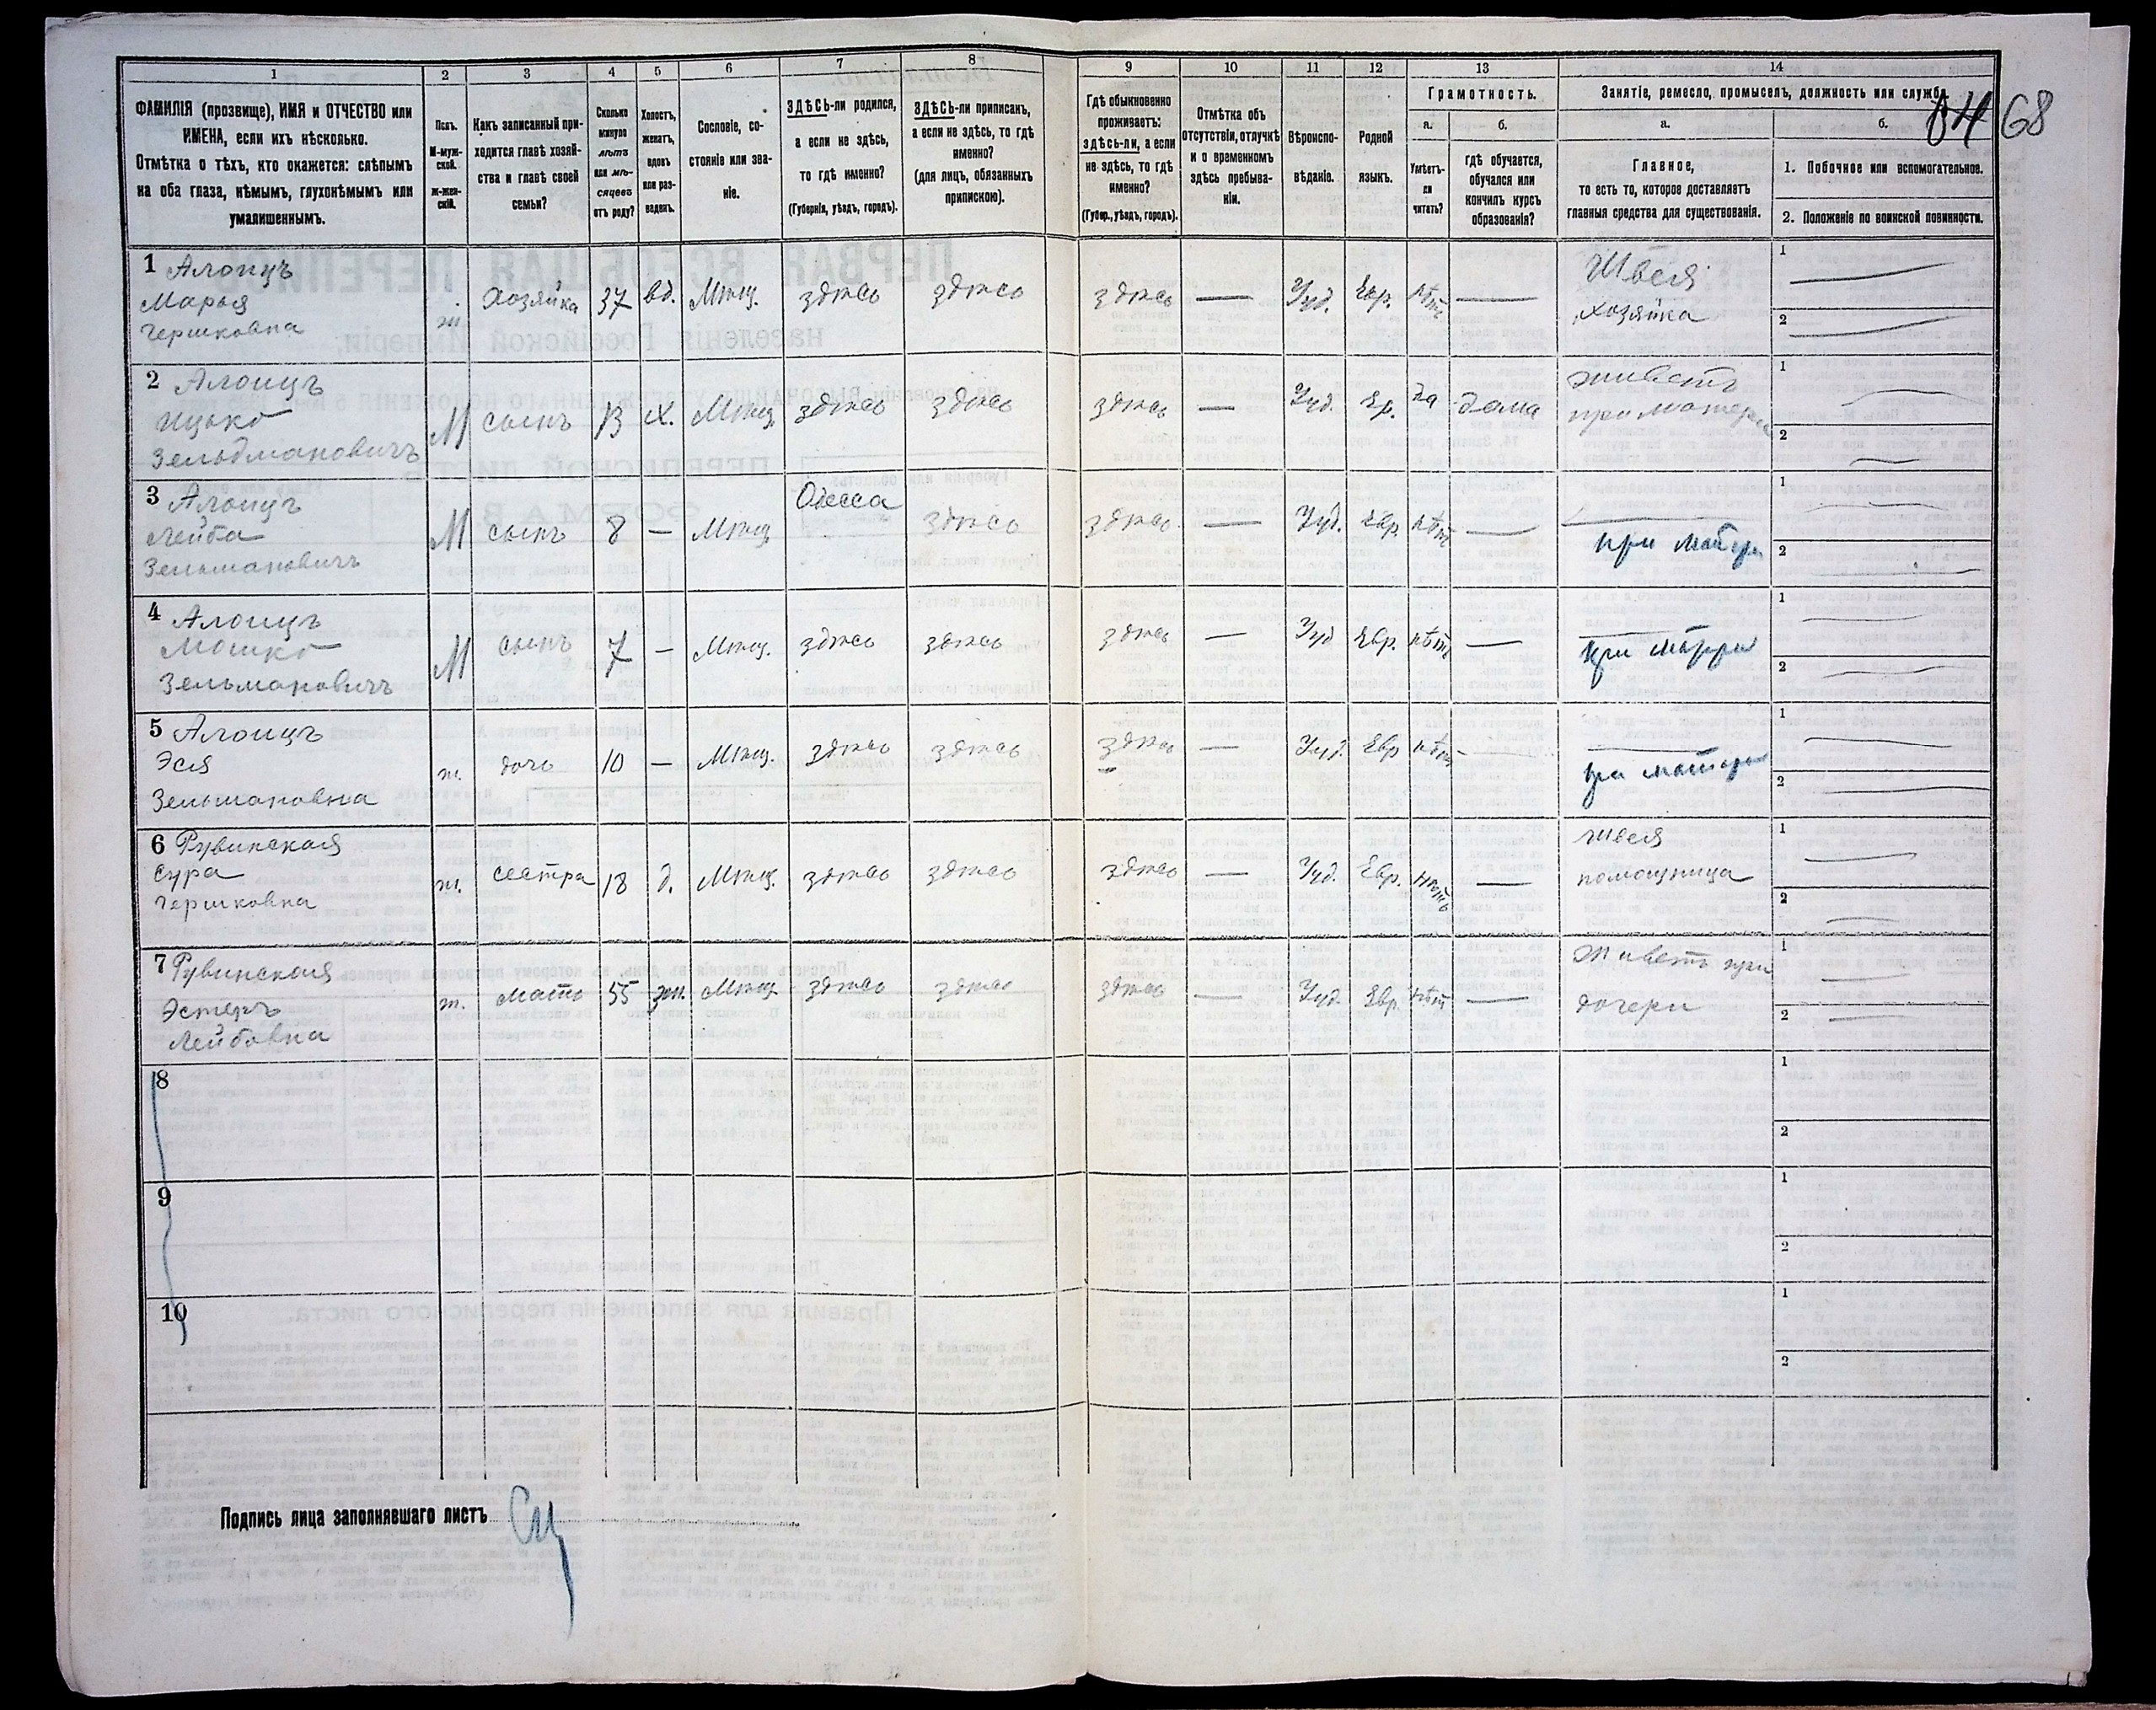 1
2
3
4
5
6
7
8
9
10
11
12
13
14
ФАМИЛІЯ (прозвище), ИМЯ и ОТЧЕСТВО или
ИМЕНА, если ихъ нѣсколько.
Отмѣтка о тѣхъ, кто окажется: слѣпымъ
на оба глаза, нѣмымъ, глухонѣмымъ или
умалишеннымъ.
Полъ.
М-муж-
ской.
ж-жен-
скій.
Какъ записанный при-
ходится главѣ хозяй-
ства и главѣ своей
семьи?
Сколько
минуло
лѣтъ
или мѣ-
сяцевъ
отъ роду?
Холостъ,
женатъ,
вдовъ
или раз-
веденъ.
Сословіе, со-
стояніе или зва-
ніе.
ЗДѢСЬ-ли родился,
а если не здѣсь,
то гдѣ именно?
(Губернія, уѣздъ, городъ).
ЗДѢСЬ-ли приписанъ,
а если не здѣсь, то гдѣ
именно?
(для лицъ, обязанныхъ
припискою).
Гдѣ обыкновенно
проживаетъ:
здѣсь-ли, а если
не здѣсь, то гдѣ
именно?
(Губер., уѣздъ, городъ).
Отмѣтка объ
отсутствіи, отлучкѣ
и о временномъ
здѣсь пребыва-
ніи.
Вѣроиспо-
вѣданіе.
Родной
языкъ.
Грамотность.
а.
б.
Умѣетъ-
ли
читать?
гдѣ обучается,
обучался или
кончилъ курсъ
образованія?
Занятіе, ремесло, промыселъ, должность или служба.
а.
б.
Главное,
то есть то, которое доставляетъ
главныя средства для существованія.
1. Побочное или вспомогательное.
2. Положеніе по воинской повинности.
68
1 Алоицъ
Марья
Гершковна
ж. Хозяйка 37 вд. Мѣщ. здѣсь здѣсь здѣсь — Іуд. Евр. нѣтъ — Швея
хозяйка
1 —
2 —
2 Алоицъ
Ицько
Зельдмановичъ
М сынъ 13 х. Мѣщ. здѣсь здѣсь здѣсь — Іуд. Ер. да дома живетъ
при матери
1 —
2 —
3 Алоицъ
Лейба
Зельмановичъ
М сынъ 8 — Мѣщ. Одесса здѣсь здѣсь — Іуд. Евр. нѣтъ — при матери
1 —
2 —
4 Алоицъ
Мошко
Зельмановичъ
М сынъ 7 — Мѣщ. здѣсь здѣсь здѣсь — Іуд Евр. нѣтъ — при матери
1 —
2 —
5 Алоицъ
Эся
Зельмановна
ж. дочь 10 — Мѣщ. здѣсь здѣсь здѣсь — Іуд. Евр нѣтъ — при матери
1 —
2 —
6 Рувинская
Сура
Гершковна
ж. сестра 18 д. Мѣщ. здѣсь здѣсь здѣсь — Іуд. Евр. нѣтъ — швея
помощница
1 —
2 —
7 Рувинская
Эстеръ
Лейбовна
ж. мать 55 зам. Мѣщ здѣсь здѣсь здѣсь — Іуд. Евр. нѣтъ — Живетъ при
дочери
1 —
2 —
8
1
2
9
1
2
10
1
2
Подпись лица заполнявшаго листъ